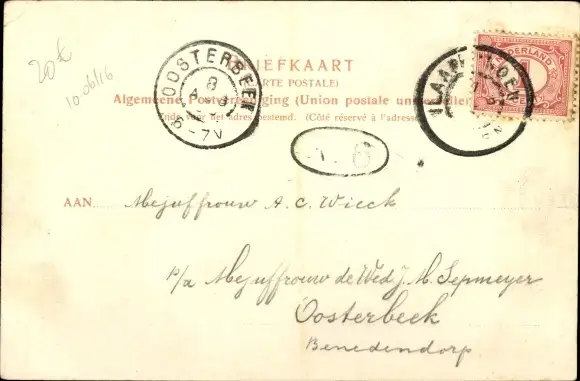 20€
10-06/16
BRIEFKAART
(CARTE POSTALE)
Algemeene Postvereeniging (Union postale universelle)
Zijde voor het adres bestemd. (Côté réservé à l'adresse)
OOSTERBEEK
8
5-7V
NEDERLAND
1
6
AAN
Mejuffrouw A. C. Wieck
p/a Mejuffrouw de Wed J. M. Sepmeyer
Oosterbeek
Benedendorp